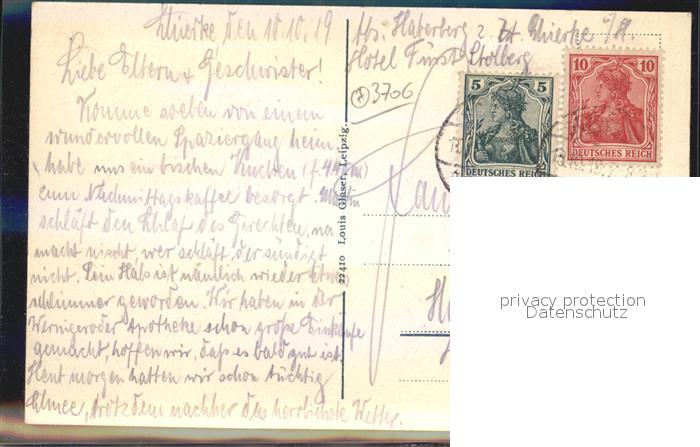 Schierke den 10.10.19
Abs. Haberberg z. Zt. Schierke i/H.
Hotel Fürst Stolberg
Liebe Eltern + Geschwister!
Komme soeben von einem
wundervollen Spaziergang heim,
+ habe uns ein bischen Kuchen
zum Nachmittagskaffee besorgt.
schläft den Schlaf des Gerechten, na
macht nischt, wer schläft, der sündigt
nicht. Sein Hals ist nämlich wieder etwas
schlimmer geworden. Wir haben in der
Wernigeroder Apotheke schon große Einkäufe
gemacht, hoffen wir, daß es bald gut ist.
Heut morgen hatten wir schon tüchtig
Schnee, trotzdem nachher das herrlichste Wetter.
3706
22410 Louis Glaser, Leipzig.
5 5
DEUTSCHES REICH
10 10
DEUTSCHES REICH
privacy protection
Datenschutz